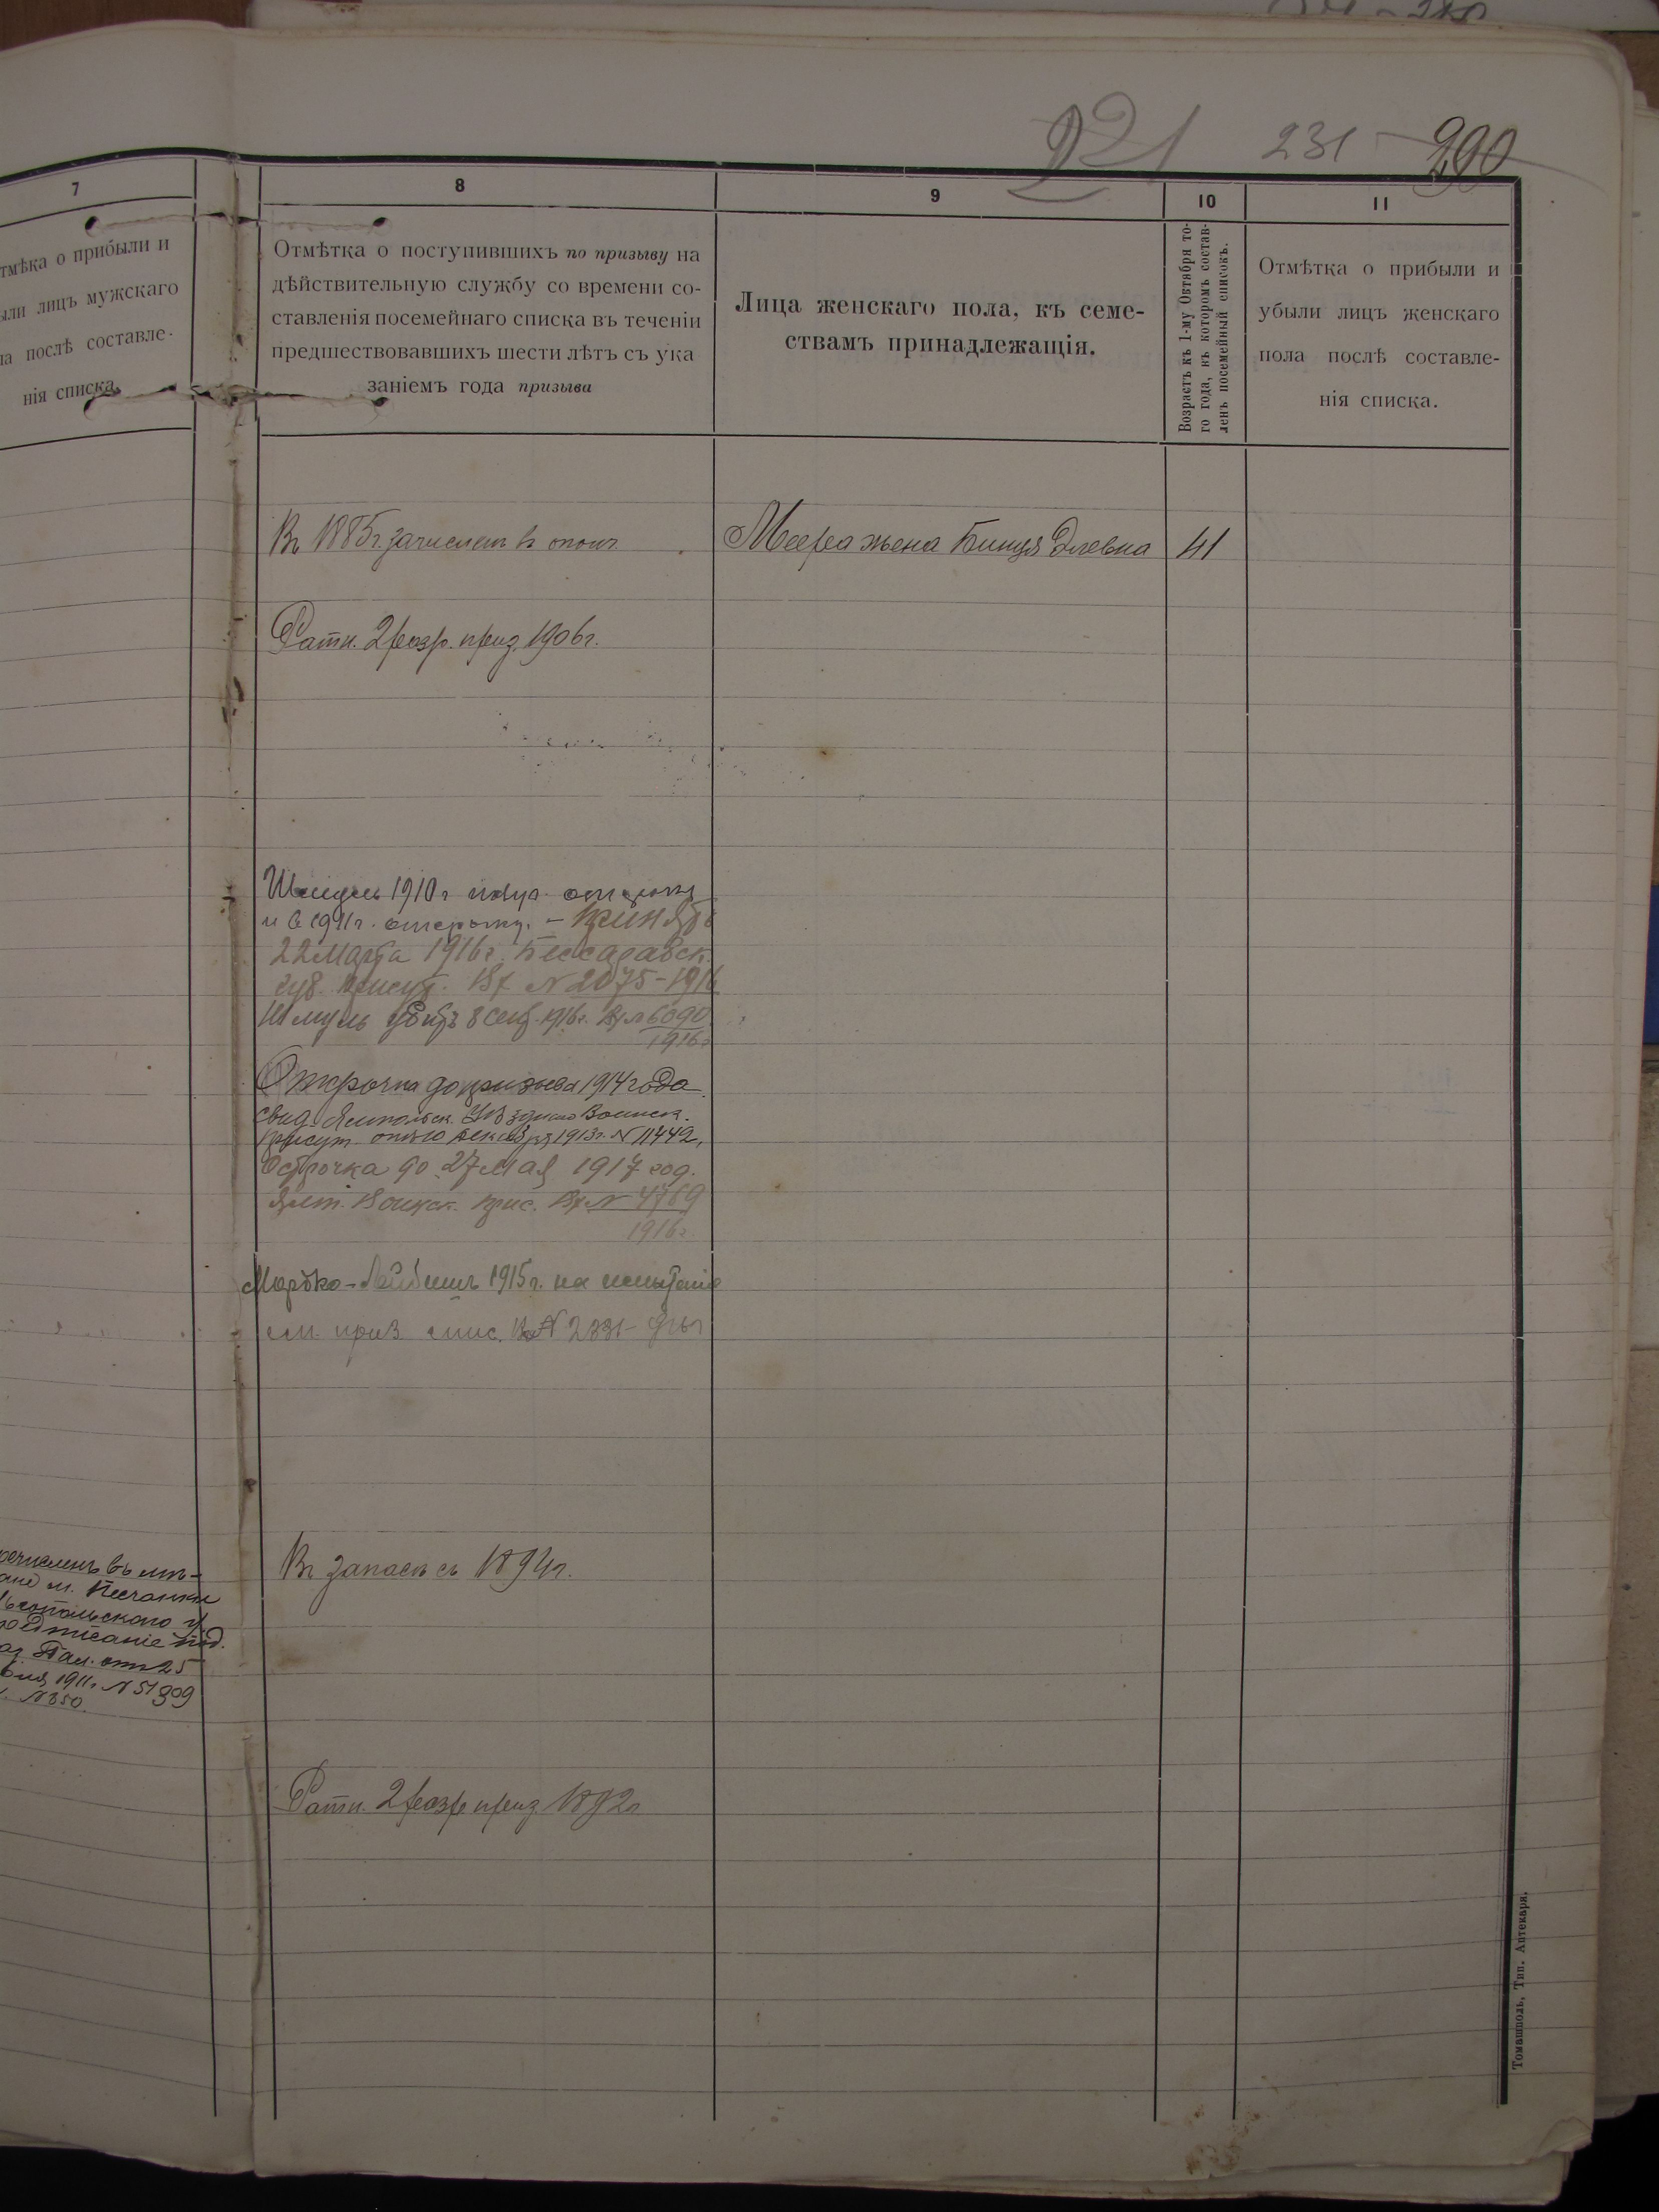 221 231 290
7
8
9
10
11
тмѣка о прибыли и
ыли лицъ мужскаго
ла послѣ составле-
нія списка.
Отмѣтка о поступившихъ по призыву на
дѣйствительную службу со времени со-
ставленія посемейнаго списка въ теченіи
предшествовавшихъ шести лѣтъ съ ука
заніемъ года призыва
Лица женскаго пола, къ семе-
ствамъ принадлежащія.
Возрастъ къ 1-му Октября то-
го года, въ которомъ состав-
ленъ посемейный списокъ.
Отмѣтка о прибыли и
убыли лицъ женскаго
пола послѣ составле-
нія списка.
Въ 1885г. зачисленъ в ополч.
Меера жена Бинця Элевна
41
Ратн. 2 разр. приз. 1906г.
1910г отсрочку
и в 1911г. отсрочку. - Принятъ
22 Марта 1916г. Бессарабск.
губ. присут. Вх № 2075-1916
Шмуль убитъ 8 сент. 1916г. Вх № 6090
1916г
Отсрочка до призыва 1914 года
свид. Ямпольск. Уѣзднаго Воинск.
присут. от 10 декабря 1913г. № 11442,
Острочка до 27 Мая 1917 год.
Ямп. Воинск. прис. Вх № 4769
1916г.
Мортко-Лейбишъ 1915г. на испытаніе
см. приз спис. № 2331
Въ запасѣ съ 1894г.
м. Песчанки
предписаніе
Пал. отъ 25
1911г. № 51309
№ 350.
Ратн. 2 разр приз 1892г
Томашполь, Тип. Аптекаря.